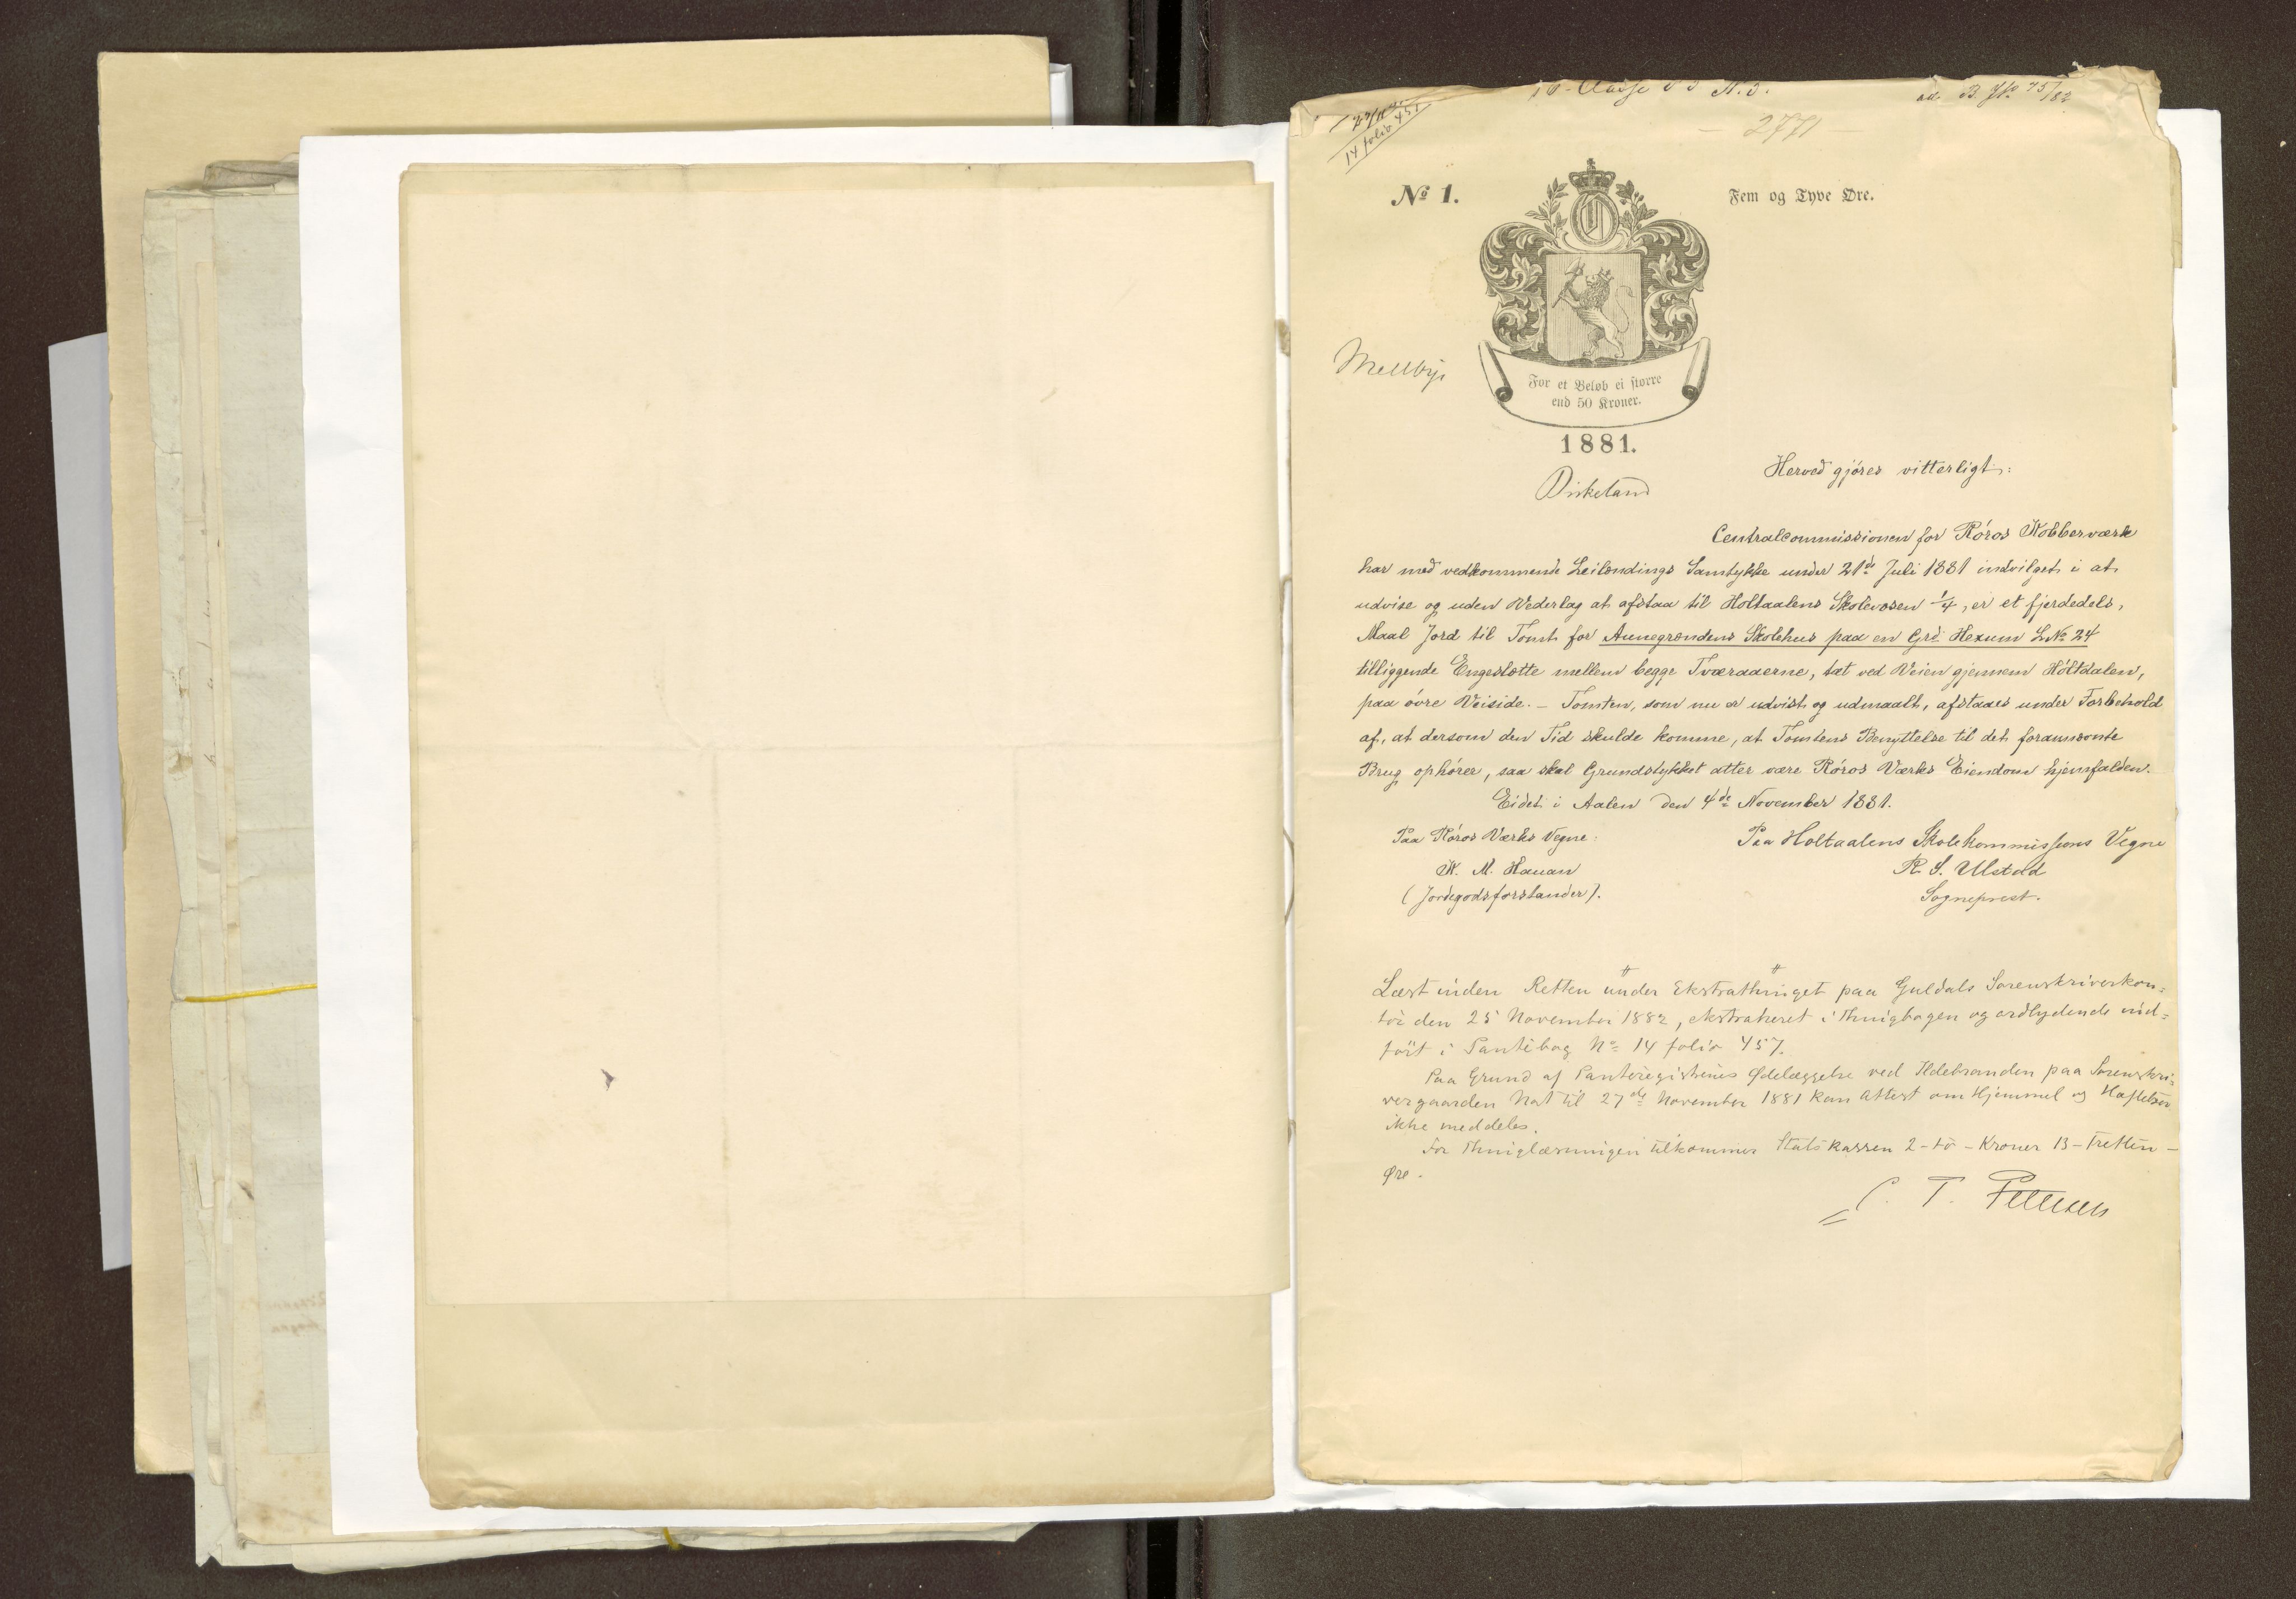 14 folio 457
ad. B. No 75/82
- 2771 -
No 1.
Fem og Tyve Øre.
For et Beløb ei større
end 50 Kroner.
Mellbye
1881.
Birkeland
Herved gjøres vitterligt:
Centralcommissionen for Röros Kobberværk
har med vedkommende Leilændings Samtykke under 21de Juli 1881 indvilget i at
udvise og uden Vederlag at afstaa til Holtaalens Skolevæsen 1/4, er et fjerdedels,
Maal Jord til Tomt for Aunegrændens Skolehus paa en Grd. Hexum L.No 24
tilliggende Engeslætte mellem begge Tværaaerne, tæt ved Veien gjennem Höltdalen,
paa övre Veiside. - Tomten, som nu er udvist og udmaalt, afstaaes under Forbehold
af, at dersom den Tid skulde komme, at Tomtens Benyttelse til det forann­vnte
Brug ophörer, saa skal Grundstykket atter være Röros Værks Eiendom hjemfalden.
Eidet i Aalen den 4de November 1881.
Paa Röros Værks Vegne:
K. M. Hauan
(Jordegodsforstander).
Paa Holtaalens Skolekommissions Vegne
R. S. Ulstad
Sogneprest.
Læst inden Retten under Ekstrathinget paa Guldals Sorenskriverkon=
tor den 25 November 1882, ekstraheret i Thingbogen og ordlydende ind=
fört i Pantebog No 14 folio 457.
Paa Grund af Panteregistrenes Ødelæggelse ved Ildebranden paa Sorenskri=
vergaarden Nat til 27de November 1881 kan Attest om Hjemmel og Hæftelser
ikke meddeles.
For Thinglæsningen tilkommer Statskassen 2 - to - Kroner 13 - Tretten -
Øre.
C. T. Petersen